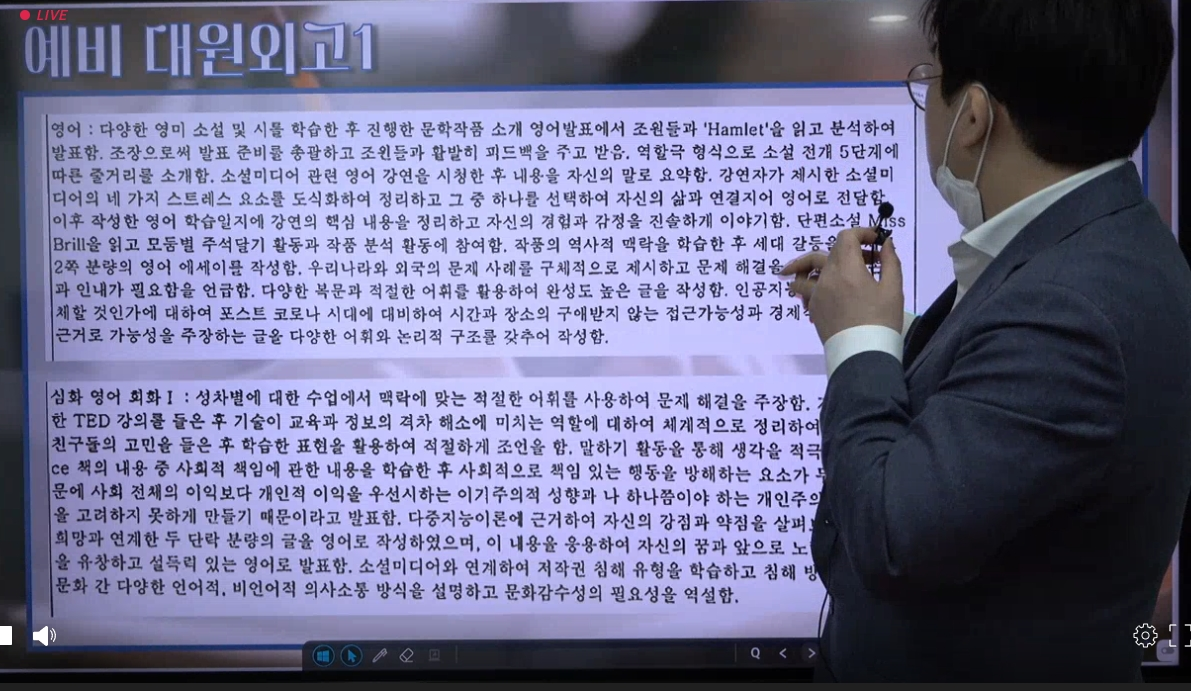 LIVE
예비 대원외고1
영어 : 다양한 영미 소설 및 시를 학습한 후 진행한 문학작품 소개 영어발표에서 조원들과 'Hamlet'을 읽고 분석하여
발표함. 조장으로써 발표 준비를 총괄하고 조원들과 활발히 피드백을 주고 받음. 역할극 형식으로 소설 전개 5단계에
따른 줄거리를 소개함. 소셜미디어 관련 영어 강연을 시청한 후 내용을 자신의 말로 요약함. 강연자가 제시한 소셜미
디어의 네 가지 스트레스 요소를 도식화하여 정리하고 그 중 하나를 선택하여 자신의 삶과 연결지어 영어로 전달함.
이후 작성한 영어 학습일지에 강연의 핵심 내용을 정리하고 자신의 경험과 감정을 진솔하게 이야기함. 단편소설 Miss
Brill을 읽고 모둠별 주석달기 활동과 작품 분석 활동에 참여함. 작품의 역사적 맥락을 학습한 후 세대 갈등을
2쪽 분량의 영어 에세이를 작성함. 우리나라와 외국의 문제 사례를 구체적으로 제시하고 문제 해결을
과 인내가 필요함을 언급함. 다양한 복문과 적절한 어휘를 활용하여 완성도 높은 글을 작성함.
체할 것인가에 대하여 포스트 코로나 시대에 대비하여 시간과 장소의 구애받지 않는 접근가능성과
근거로 가능성을 주장하는 글을 다양한 어휘와 논리적 구조를 갖추어 작성함.
심화 영어 회화Ⅰ : 성차별에 대한 수업에서 맥락에 맞는 적절한 어휘를 사용하여 문제 해결을 주장함.
한 TED 강의를 들은 후 기술이 교육과 정보의 격차 해소에 미치는 역할에 대하여 체계적으로 정리하여
친구들의 고민을 들은 후 학습한 표현을 활용하여 적절하게 조언을 함. 말하기 활동을 통해 생각을
ce 책의 내용 중 사회적 책임에 관한 내용을 학습한 후 사회적으로 책임 있는 행동을 방해하는 요소가
문에 사회 전체의 이익보다 개인적 이익을 우선시하는 이기주의적 성향과 나 하나쯤이야 하는
을 고려하지 못하게 만들기 때문이라고 발표함. 다중지능이론에 근거하여 자신의 강점과 약점을
희망과 연계한 두 단락 분량의 글을 영어로 작성하였으며, 이 내용을 응용하여 자신의 꿈과 앞으로
을 유창하고 설득력 있는 영어로 발표함. 소셜미디어와 연계하여 저작권 침해 유형을 학습하고 침해
문화 간 다양한 언어적, 비언어적 의사소통 방식을 설명하고 문화감수성의 필요성을 역설함.